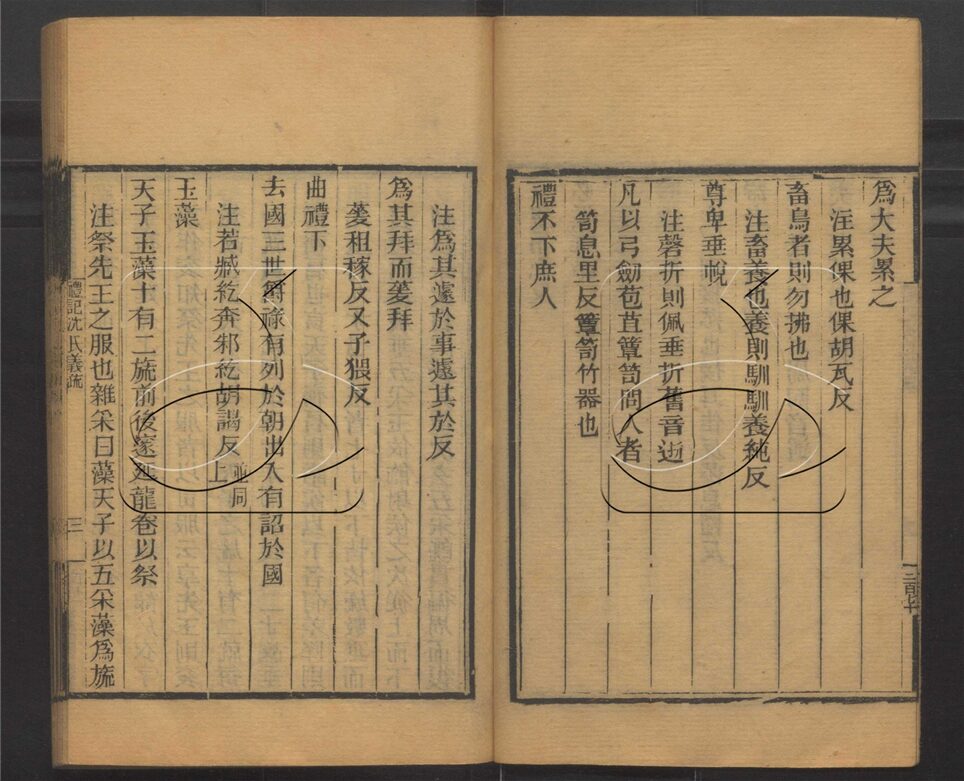 爲大夫累之
注累倮也倮胡瓦反
畜鳥者則勿拂也
注畜養也養則馴馴養純反
尊卑垂帨
注磬折則佩垂折舊音逝
凡以弓劒苞苴簟笥問人者
笥息里反簟笥竹器也
禮不下庶人
注爲其遽於事遽其於反
爲其拜而蓌拜
蓌租稼反又子猥反
曲禮下
去國三世爵祿有列於朝出入有詔於國
注若臧紇奔邾紇胡謁反並同上
玉藻
天子玉藻十有二旒前後邃延龍卷以祭
注祭先王之服也雜采曰藻天子以五采藻爲旒
禮記沈氏義疏
三